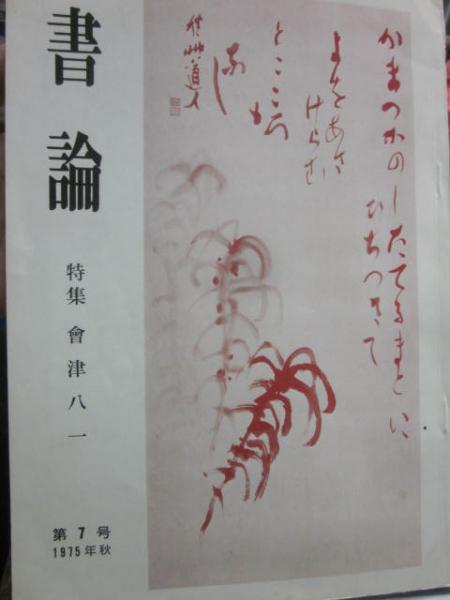 書論
特集 會津八一
第7号
1975年秋
かまつかのしたてるまとに
ひちつきて
よをあさ
けらむ
とこころも
なし
秋艸道人